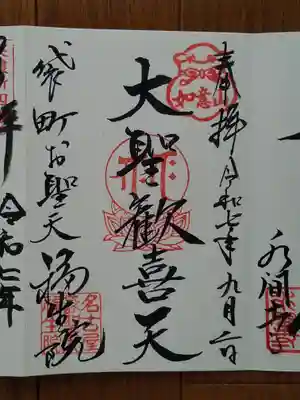 水間寺
奉拝 令和七年九月
如意山
大聖歡喜天
袋町お聖天 福生院
令和七年